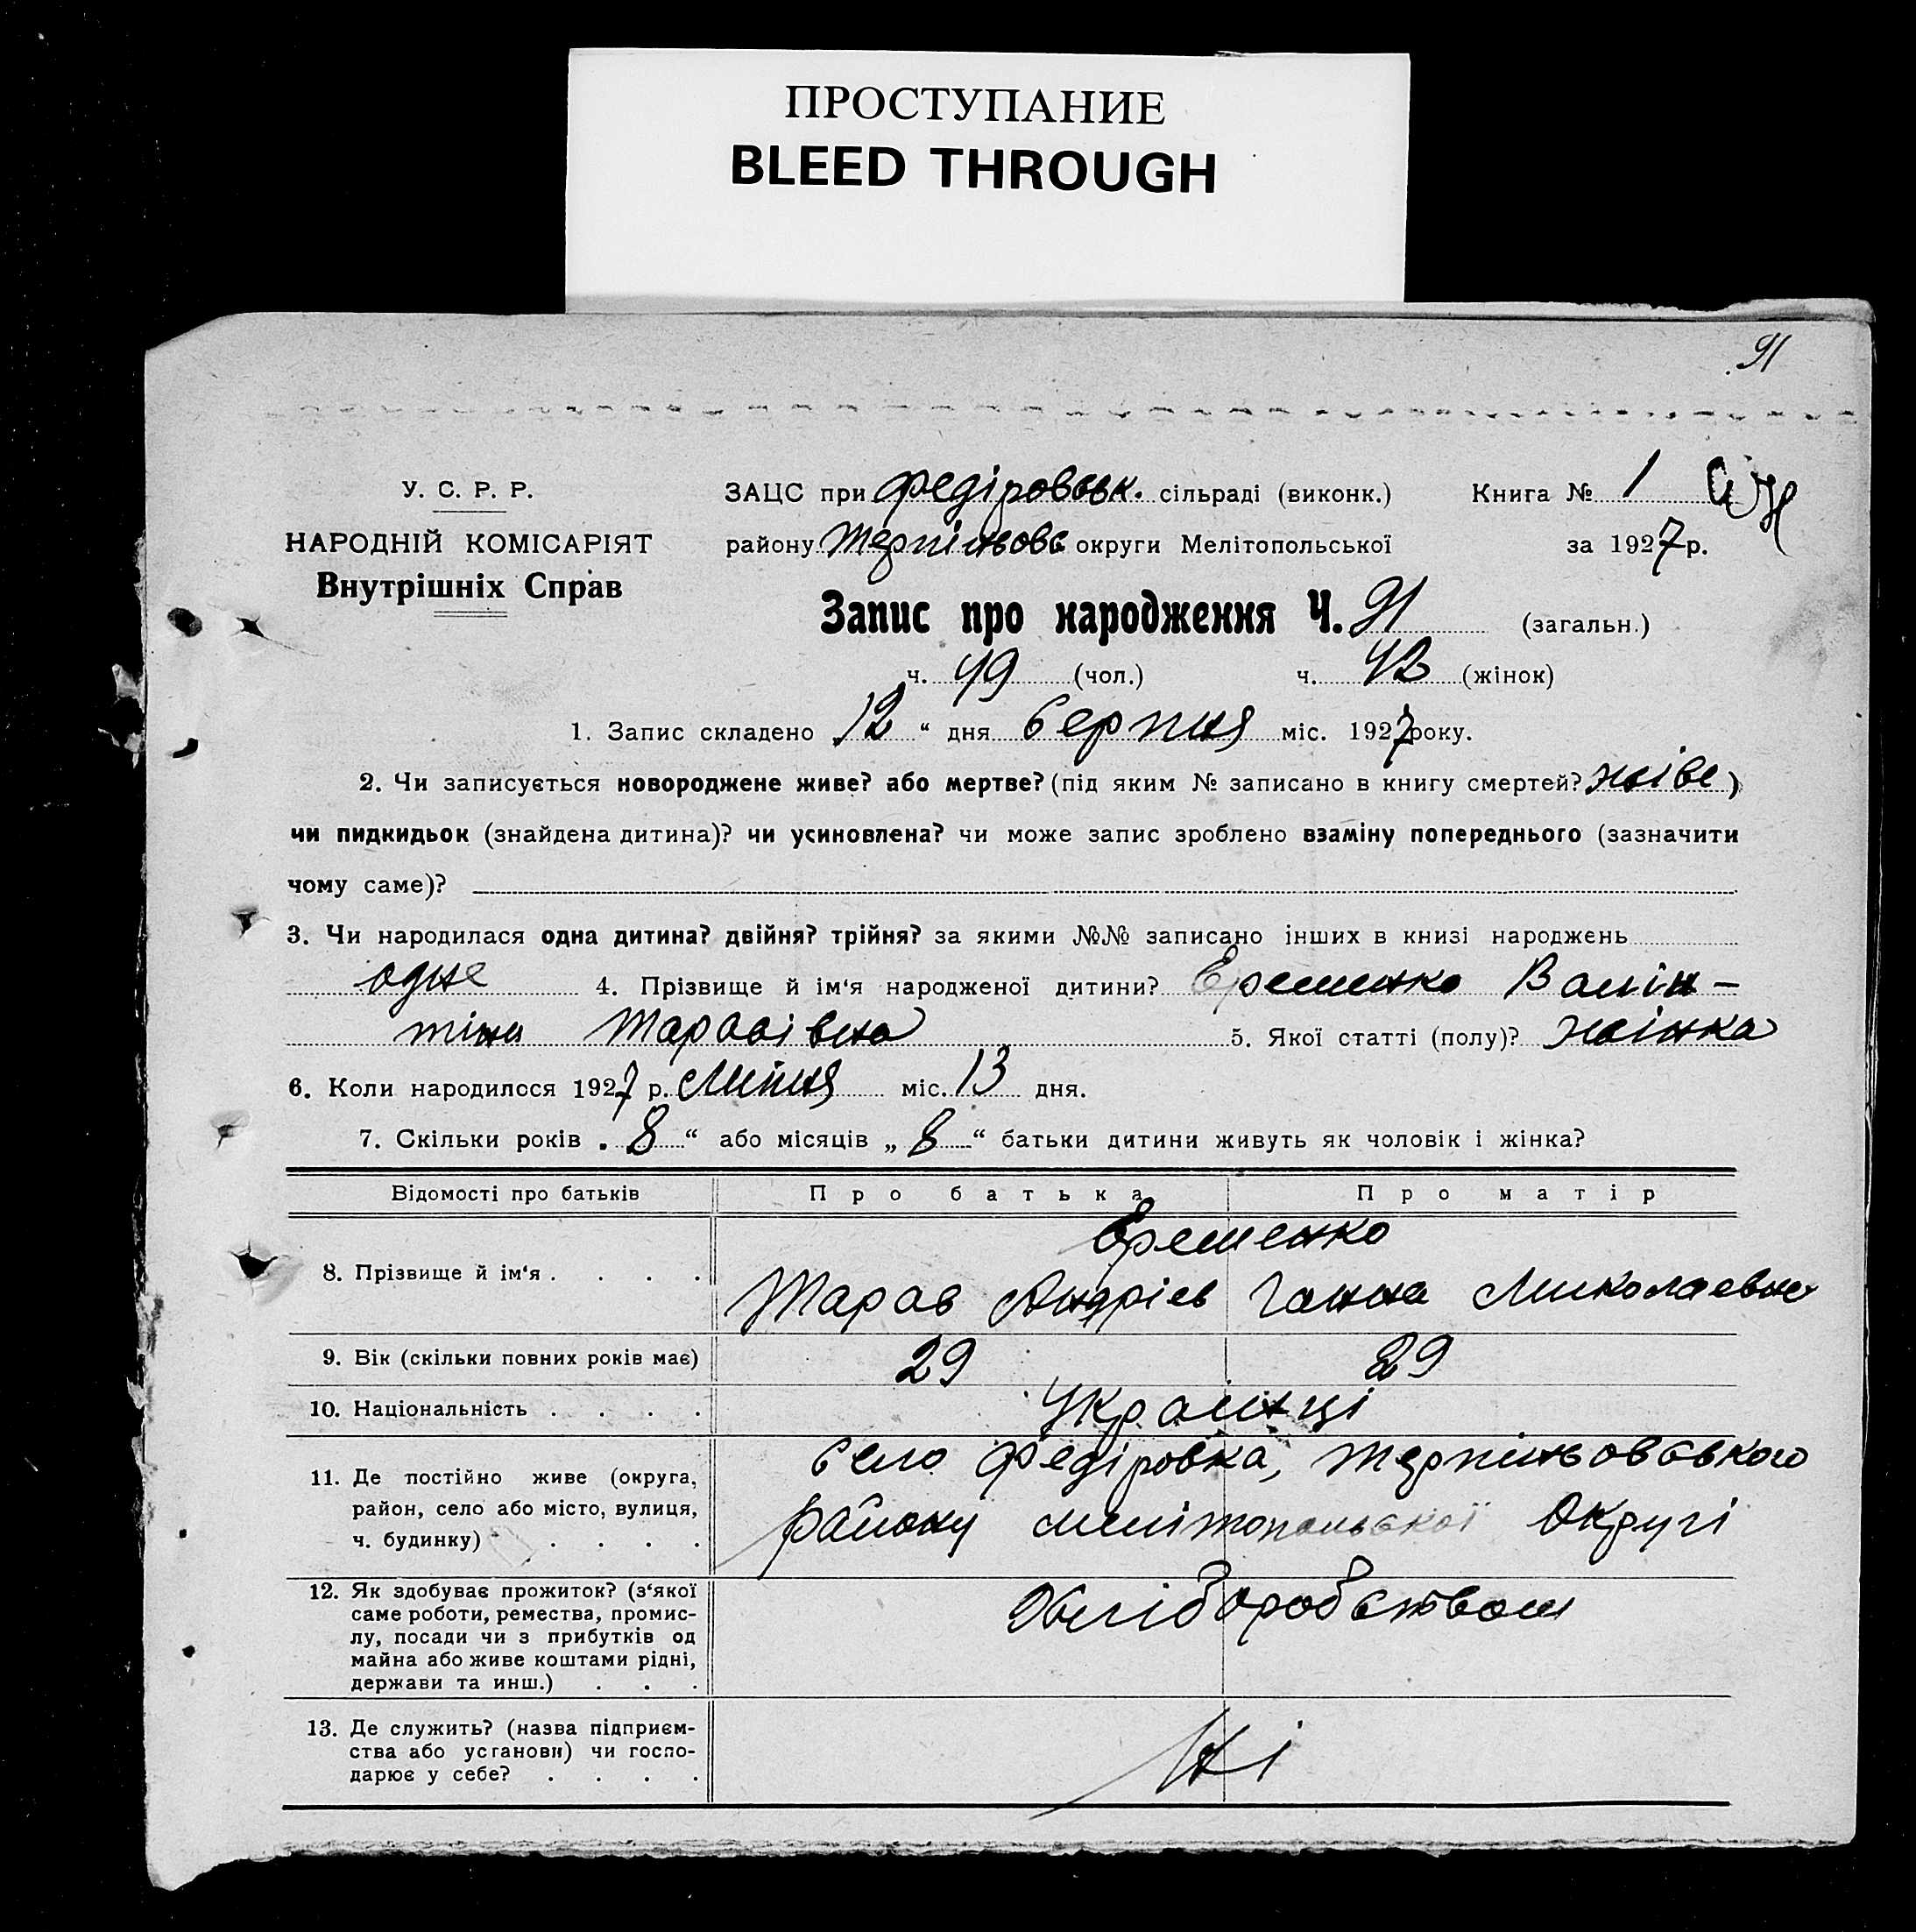 ПРОСТУПАНИЕ
BLEED THROUGH
91
У. С. Р. Р.
НАРОДНІЙ КОМІСАРІЯТ
Внутрішніх Справ
ЗАЦС при Федіровськ. сільраді (виконк.) Книга № 1
району Терпіньовс округи Мелітопольської за 1927 р.
Запис про народження Ч. 91 (загальн.)
ч. 49 (чол.) ч. 42 (жінок)
1. Запис складено 12 “ дня Серпня міс. 1927 року.
2. Чи записується новороджене живе? або мертве? (під яким № записано в книгу смертей? живе )
чи пидкидьок (знайдена дитина)? чи усиновлена? чи може запис зроблено взаміну попереднього (зазначити
чому саме)?
3. Чи народилася одна дитина? двійня? трійня? за якими №№ записано інших в книзі народжень
одне 4. Прізвище й ім‘я народженої дитини? Еременко Валін-
тина Тарасівна 5. Якої статті (полу)? жінка
6. Коли народилося 1927 р. Липня міс. 13 дня.
7. Скільки років „ 8 “ або місяців „ 8 “ батьки дитини живуть як чоловік і жінка?
Відомості про батьків Про батька Про матір
8. Прізвище й ім‘я . . . .
Еременко
Тарас Андріев Ганна Миколаевна
9. Вік (скільки повних років має) 29 29
10. Національність . . . . Украінці
11. Де постійно живе (округа,
район, село або місто, вулиця,
ч. будинку) . . . .
село Федіровка, Терпиньовського
району мелітопольскої Округі
12. Як здобуває прожиток? (з‘якої
саме роботи, ремества, промис-
лу, посади чи з прибутків од
майна або живе коштами рідні,
держави та инш.) . . .
Хліборобством
13. Де служить? (назва підприєм-
ства або установи) чи госпо-
дарює у себе? . . . .
Ні